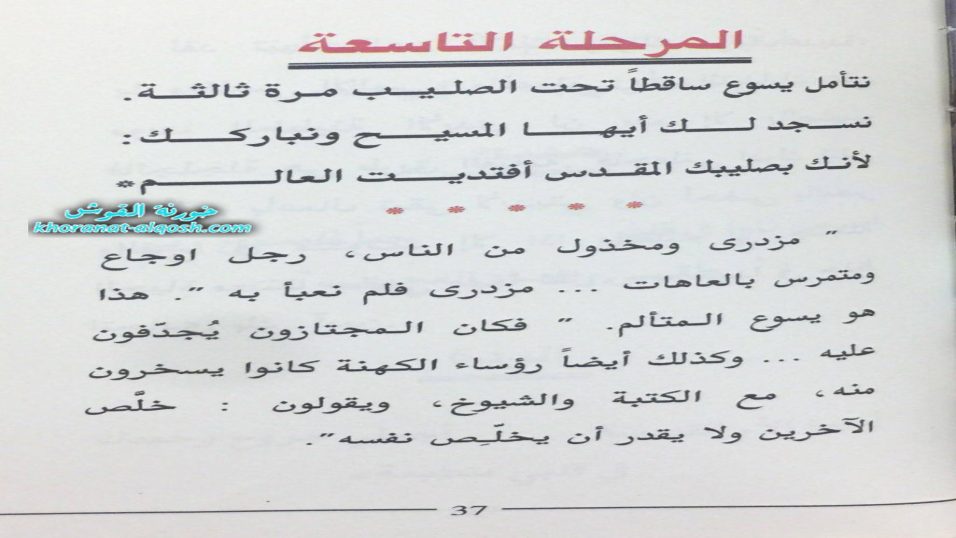 المرحلة التاسعة
نتأمل يسوع ساقطاً تحت الصليب مرة ثالثة.
نسجد لك أيها المسيح ونباركك:
لأنك بصليبك المقدس أفتديت العالم*
* * * * *
خورنة القوش
khoranat-alqosh.com
" مزدرى ومخذول من الناس، رجل اوجاع
ومتمرس بالعاهات ... مزدرى فلم نعبأ به ". هذا
هو يسوع المتألم. " فكان المجتازون يُجدّفون
عليه ... وكذلك أيضاً رؤساء الكهنة كانوا يسخرون
منه، مع الكتبة والشيوخ، ويقولون : خلَّص
الآخرين ولا يقدر أن يخلّـِص نفسه".
37